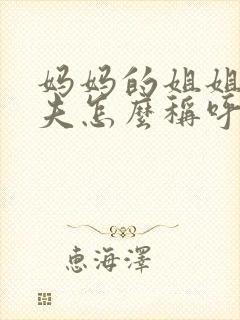 妈妈的姐姐
夫怎麼稱呼
恵海澤